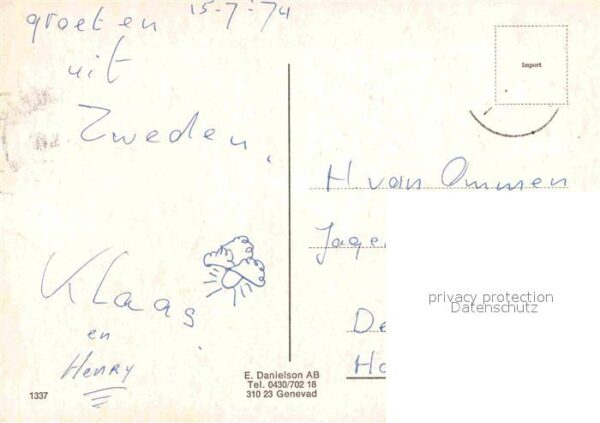 groeten 15-7-'74
uit
Zweden.
Klaas
en
Henry
Import
H. van Ommen
Jage
De
Ho
privacy protection
Datenschutz
E. Danielson AB
Tel. 0430/702 18
310 23 Genevad
1337